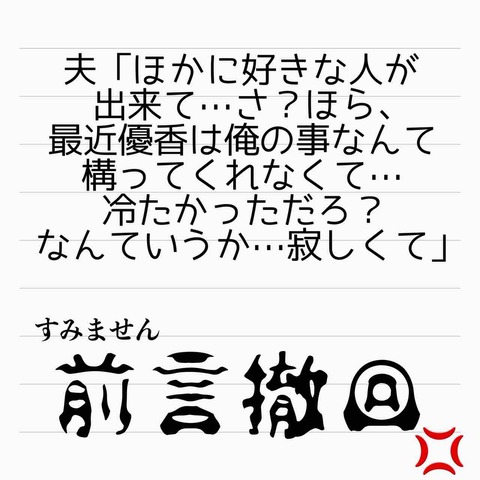 夫「ほかに好きな人が
出来て…さ？ほら、
最近優香は俺の事なんて
構ってくれなくて…
冷たかっただろ？
なんていうか…寂しくて」
すみません
前言撤回